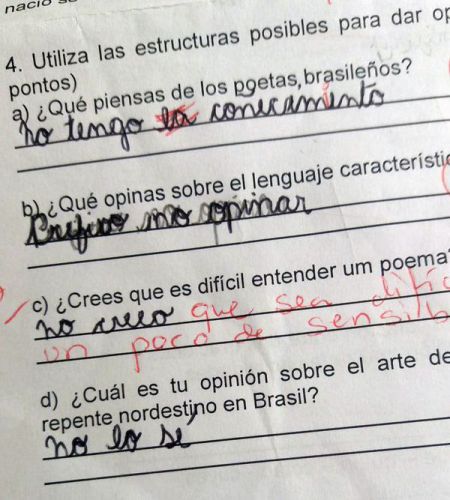 nació
4. Utiliza las estructuras posibles para dar op
pontos)
a) ¿Qué piensas de los poetas brasileños?
no tengo la conecamento
b) ¿Qué opinas sobre el lenguaje característic
Prefiro no opinar
c) ¿Crees que es difícil entender um poema
no creo que sea difíc
un poco de sensib
d) ¿Cuál es tu opinión sobre el arte de
repente nordestino en Brasil?
no lo se